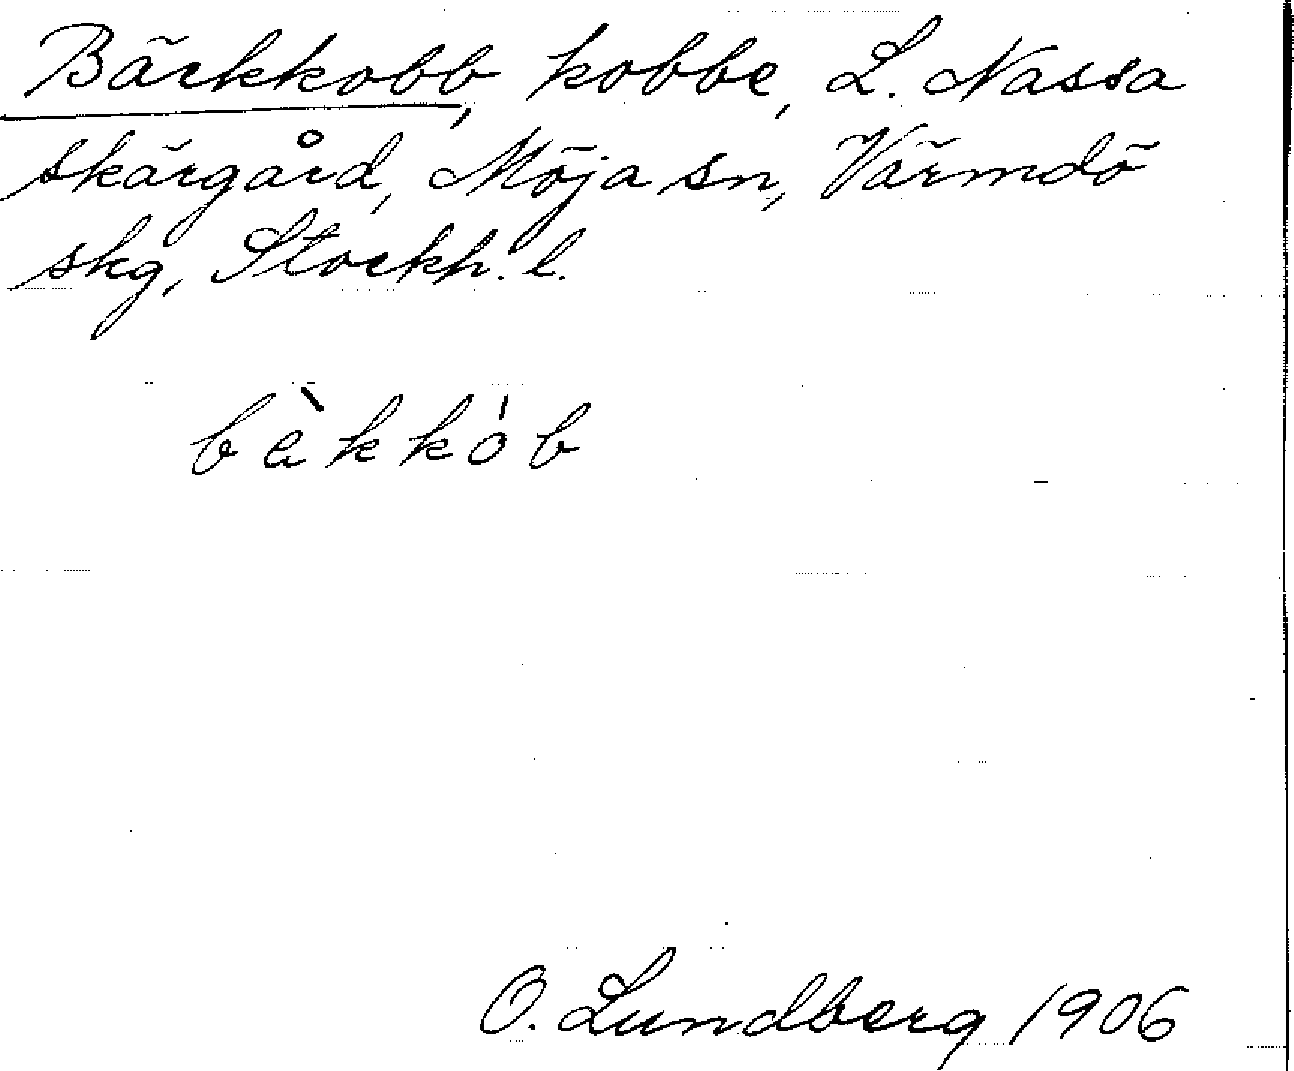 Bäckkobb, kobbe, L. Nassa
skärgård, Möja sn, Värmdö
skg, Stockh. l.
bàkkób
O. Lundberg 1906